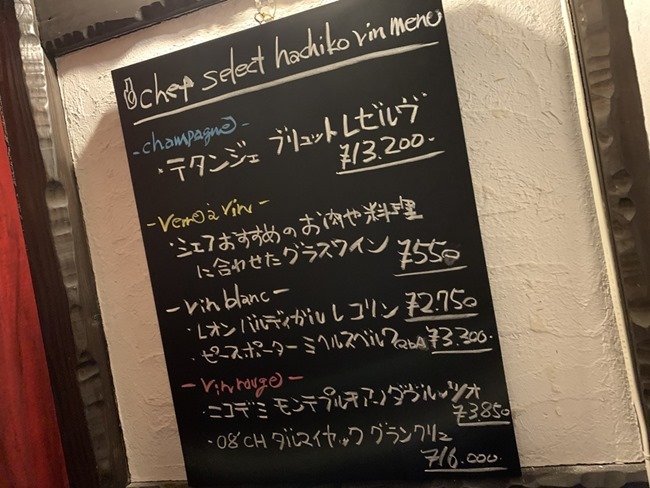 chef select hachiko vin menu
-champagne-
・テタンジェ ブリュット Lゼルヴ
¥13.200.-
-verre à vin-
・シェフおすすめのお肉や料理
に合わせたグラスワイン ¥550
-vin blanc-
・Lオン バルディガル Lコリン ¥2.750
・ピースポーター ミヘルスベルク QbA ¥3.300.
-vin rouge-
・ニコデミ モンテプルチアーノダブルッツォ
¥3.850
・08'CH ダルマイヤック グランクリュ
¥16.000.